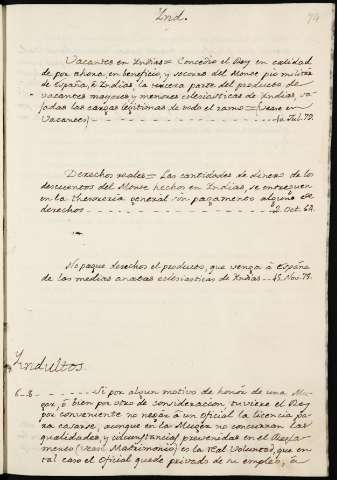 Ind.
74
Vacantes en Indias = Concedio el Rey en calidad
de por ahora, en beneficio, y socorro del Monte pio militar
de España, é Indias, la tercera parte del producto de
vacantes mayores y menores eclesiasticas de Indias, va=
jadas las cargas legitimas de todo el ramo = (Vease en
Vacantes) - - - - - - - - - - - - - - Jul. 79.
Derechos reales = Las cantidades de dinero de los
descuentos del Monte hechos en Indias, se entreguen
en la thesoreria general sin pagamento alguno de
derechos - - - - - - - - - - - - - - 2. Oct. 62.
No pague derechos el producto, que venga à España
de las medias anatas eclesiasticas de Indias - - 15. Nov. 75.
Indultos.
6-8 - - - - - - - Si por algun motivo de honór de una Mu=
ger, ò bien por otro de consideracion tuviere el Rey
por conveniente no negar à un oficial la licencia pa=
ra casarse, aunque en la Muger no concurran las
qualidades, y circunstancias prevenidas en el Regla=
mento (Vease Matrimonio) es la Real Voluntad, que en
tal caso el oficial quede privado de su empleo, ò